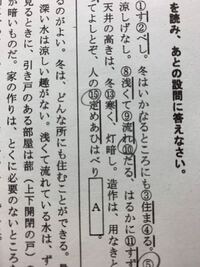 を読み、あとの設問に答えなさい。
①す②べし。冬はいかなるところにも③住ま④る。⑤
涼しげなし。⑧浅くて⑨流れ⑩たる、はるかに⑪す
天井の高きは、冬⑬寒く、灯暗し。造作は、用なき
てよしとぞ、人の⑮定めあひはべり
A
るのがよい。冬は、どんな所にも住むことができる。
深い水は涼しい趣がない。浅くて流れている水は、ず
見るときに、引き戸のある部屋は蔀（上下開閉の戸）の
が暗いものだ。家の作りは、とくに必要のない